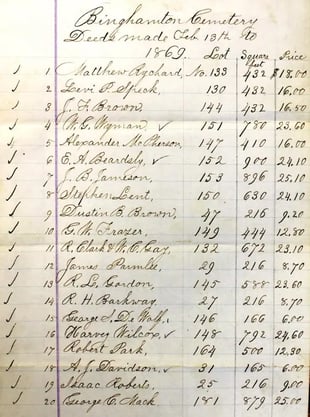 Binghamton Cemetery
Deeds made Feb 13th to
1869. Lot Square feet Price
1 Matthew Rychard, No. 133 432 $18.00
2 Levi P. Speck, 130 432 16.00
3 J. F. Brown, 144 432 16.50
4 W. G. Wyman, 151 780 23.60
5 Alexander McPherson, 147 410 16.00
6 E. A. Beardsly, 152 900 24.10
7 J. B. Jameson, 153 896 25.10
8 Stephen Lent, 150 630 24.10
9 Dustin B. Brown, 47 216 9.20
10 G. W. Frazer, 149 444 12.80
11 R. Clark & W. C. Gay, 132 672 23.10
12 James Parmlee, 29 216 8.70
13 R. L. Gordon, 145 588 23.60
14 R. H. Barkway, 27 216 8.70
15 George L. De Wolf, 146 166 6.00
16 Harvey Wilcox, 148 792 24.60
17 Robert Park, 164 500 12.30
18 A. J. Davidson, 31 165 6.00
19 Isaac Roberts, 25 216 9.00
20 George C. Mack 181 879 25.00